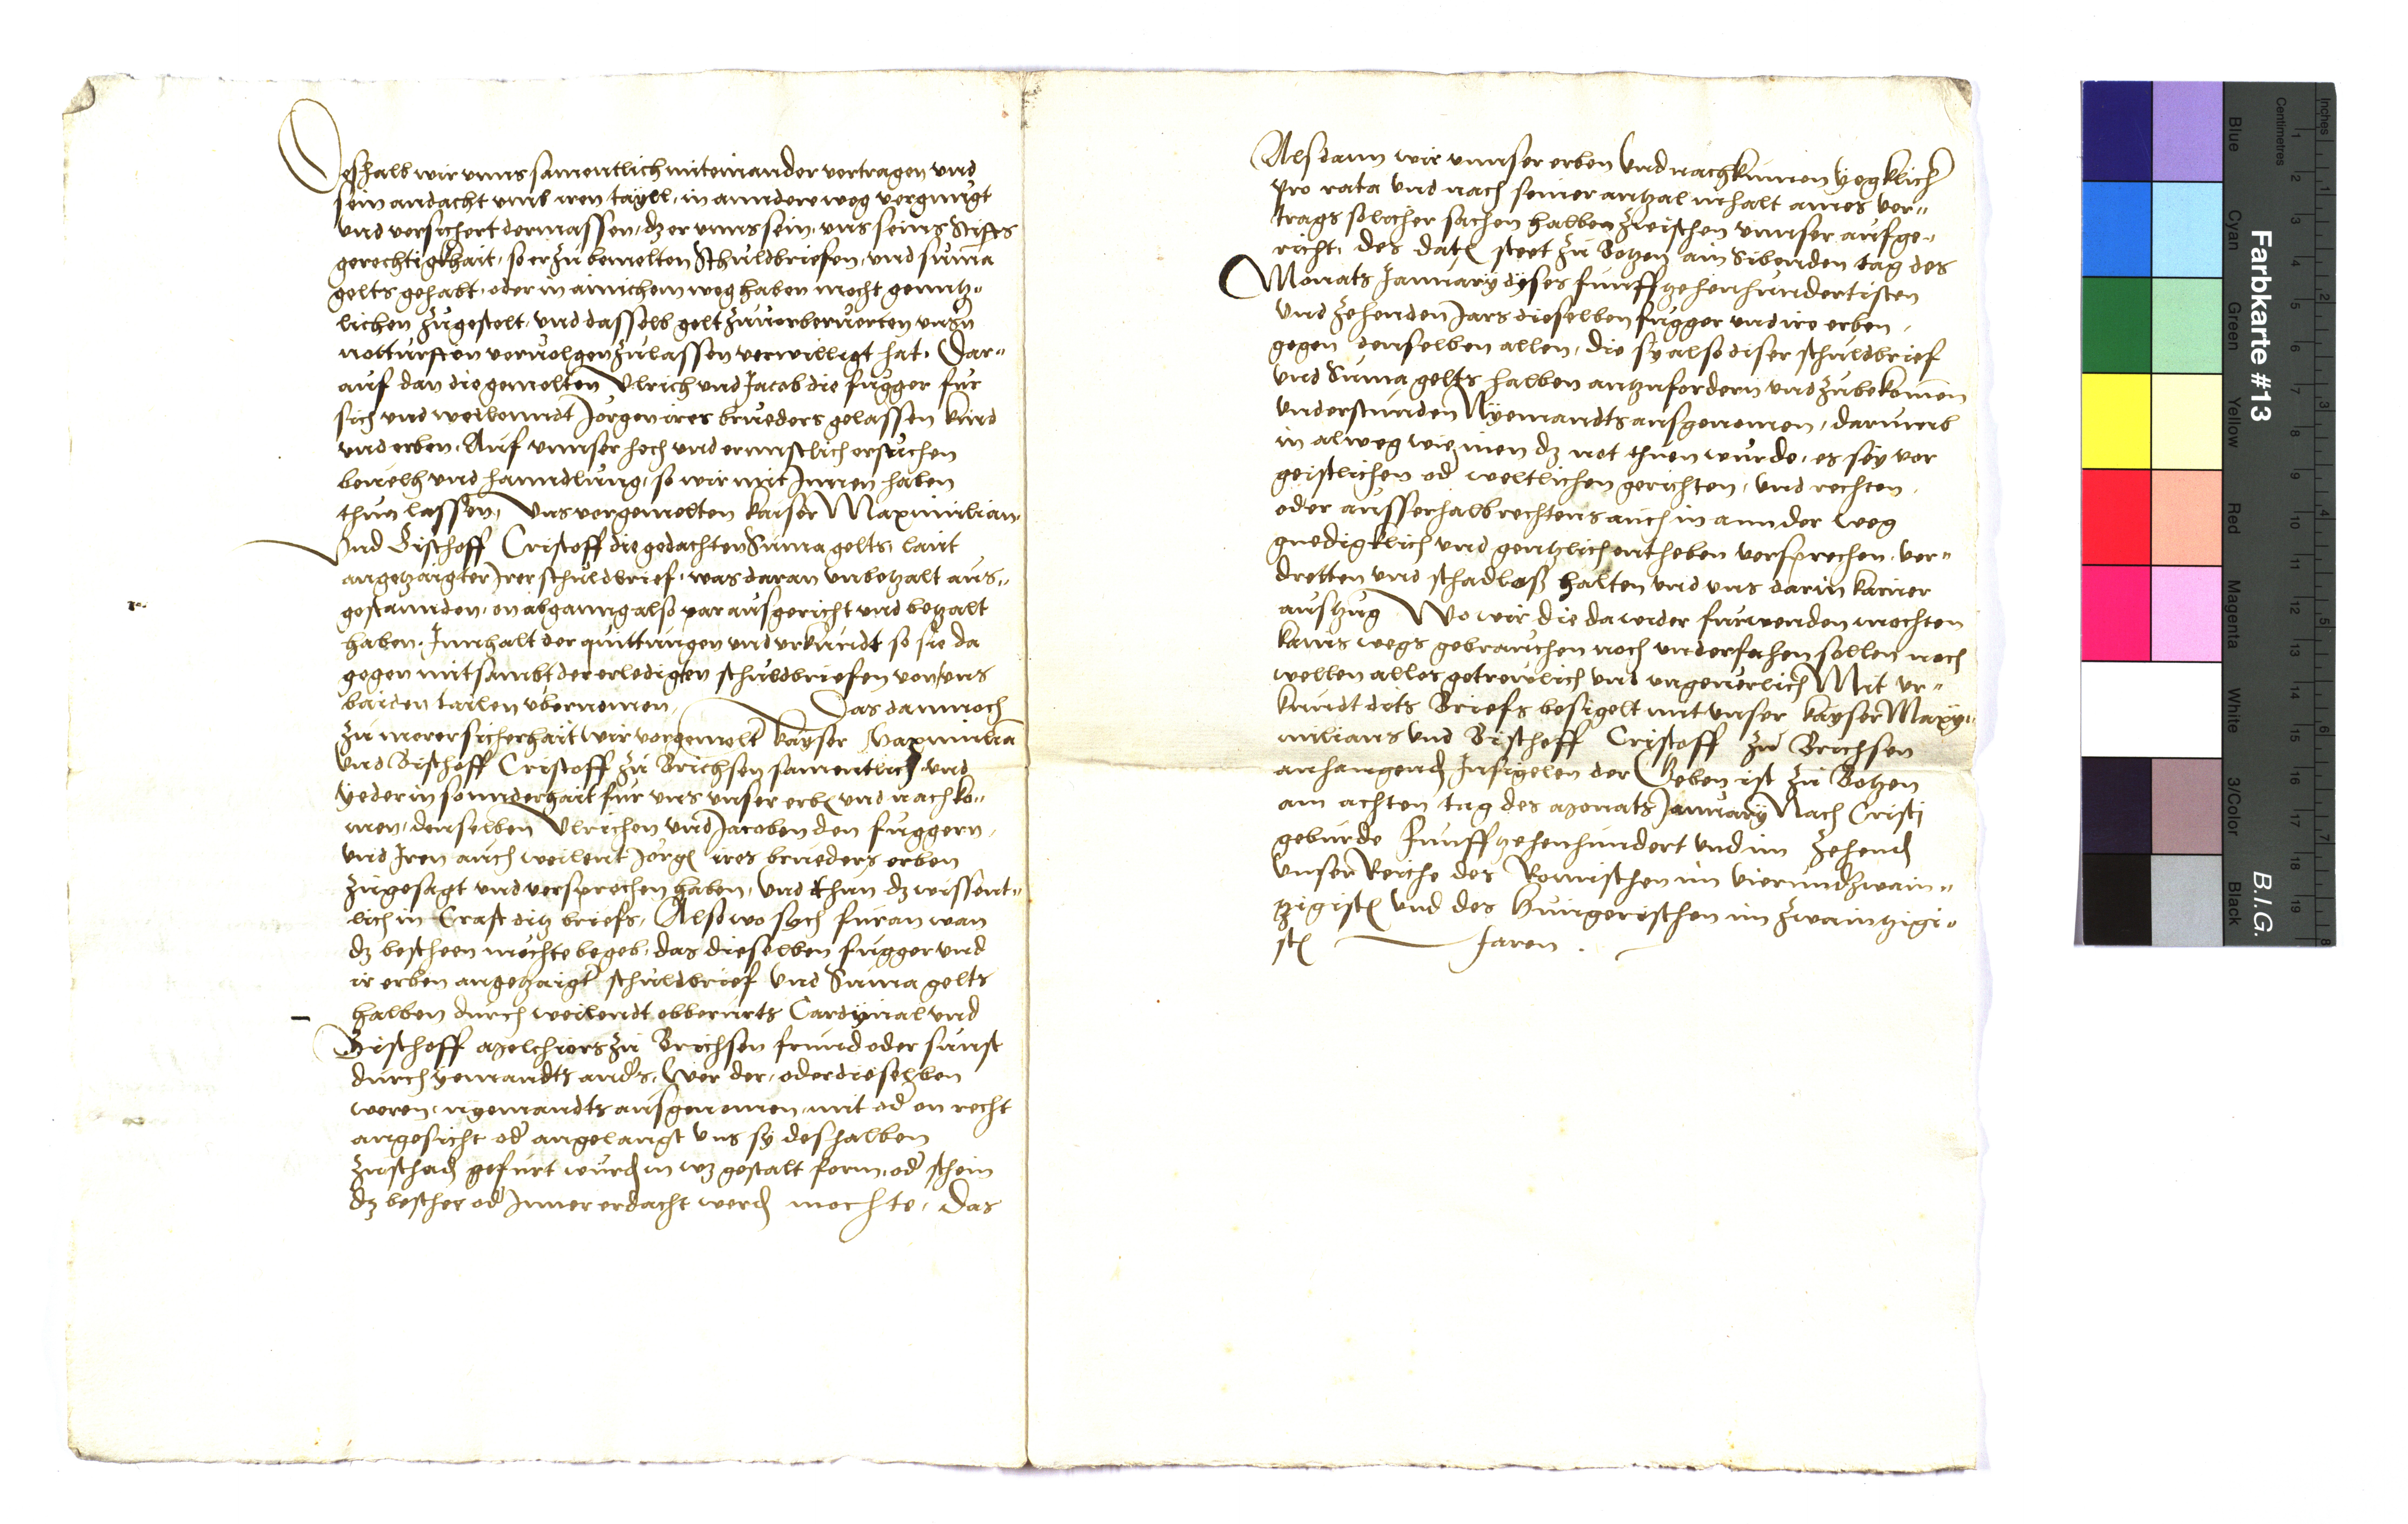 Deshalb wir vnns samentlich miteinander vertragen vnd
sein andacht vmb iren tayll, in annder weg vergnugt
vnd versichert dermassen, dz er vnns sein, vns seins Stiffts
gerechtigkhait, so er zu bemelten Schuldbriefen, vnd suma
gelts gehabt, oder in ainichem weg haben mocht genntz„
lichen zugestelt, vnd dasselb gelt zu vnsern
notturfften veruolgen zulassen verwilligt hat. Dar„
auf dan die gemelten Ulrich und Jacob die fugger fur
sich und weylenndt Jörgen ires brueders gelassen kind
vnd erben. Auf vnnser hoch vnd ernnstlich ersuchen
beuelh und hanndlung, so wir mit Innen haben
thun lassen, Vns vorgemelten kaiser Maximilian
Und Bischoff Cristoff die gedachten Suma gelts, laut
angetzaigter Irer schuldbrief, was daran vnbetzalt aus„
gestannden, on abganng also par ausgericht vnd betzalt
haben. Innhalt der quittungen vnd vrkundt so sie da
gegen mitsambt der erledigten schuldbriefen von vns
baiden tailen vbernemen, Das dannoch
zu merer sicherhait wir vorgemelt kayser Maximilia
vnd Bischoff Cristoff zu Brichsen samentlich vnd
yeder in sonnderhait fur vns vnser erben vnd nachko„
men, denselben Ulrichen vnd Jacoben den fuggern,
vnd Iren auch weilent Jorgen ires brueders erben
zugesagt vnd versprochen haben, vnd thun dz wissent„
lich in Craft ditz briefs, Also wo sych furan wan
dz bescheen mochte begeb, das dieselben fugger vnd
ir erben angetzaigt schuldbrief vnd Suma gelts
halben durch weilendt obberurts Cardynal vnd
Bischoff Melchiors zu Brichsen frund oder sunst
durch yemandts anders, Wer der, oder dieselben
weren, nyemandts ausgenomen, mit oder on recht
angesicht oder angelangt vns sy deshalben
zu schaden gefurt wurden in wz gestalt form, oder schein
dz beschee oder Inner erdacht werden mochte, das
Alsdann wir vnnser erben Und nachkumen yegklicher
pro rata Und nach seiner antzal inhalt aines ver„
trags solicher sachen halben zwischen vnnser aufge„
richt, des daten steet zu Botzen am Sibenden tag des
Monats January dyses funffzehenhundertisten
Und zehenden Jars dieselben fugger und ire erben,
gegen denselben allen, die sy also diser schuldbrief
vnd Suma gelts halben antzufordern vnd zubekomen
vnderstunden Nyemandts ausgenomen, darumb
in alweg wie inen dz not thuen wurde, es sey vor
geistlichen oder weltlichen gerichten, vnd rechten,
oder ausserhalb rechtens auch in annder weg
gnedigklich vnd gentzlich entheben versprechen, ver„
dretten vnd schadlos halten vnd vns darin kainer
ausszug Wo wir die dawider furwenden mochten
kains wegs gebrauchen noch vnderfahen sollen noch
wellen alles getreulich vnd vngeuerlich Mit Vr„
kundt dits Briefs besigelt mit vnser kayser Maxy„
milians vnd Bischoff Cristoff zu Brichsen
anhangenden Insigelen der Geben ist zu Botzen
am achten tag des Monats January Nach Cristi
geburde funffzehenhundert vnd im zehenden
Vnser Reiche des Romischen im vierundzwain„
tzigisten vnd des Hungerischen im zwaintzigi„
sten Jaren.
Farbkarte #13
B.I.G.
Inches
Centimetres
Blue
Cyan
Green
Yellow
Red
Magenta
White
3/Color
Black
1 2 3 4 5 6 7 8 9 10 11 12 13 14 15 16 17 18 19
1 2 3 4 5 6 7 8